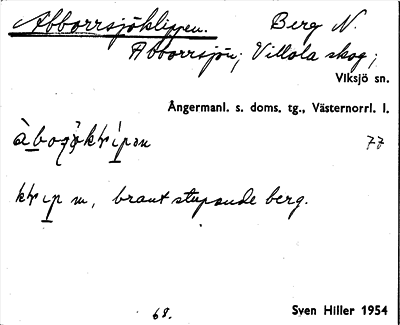 Abborrsjöklippen. Berg N.
Abborrsjön; Villola skog;
Viksjö sn.
Ångermanl. s. doms. tg., Västernorrl. l.
77
m, brant stupande berg.
68. Sven Hiller 1954